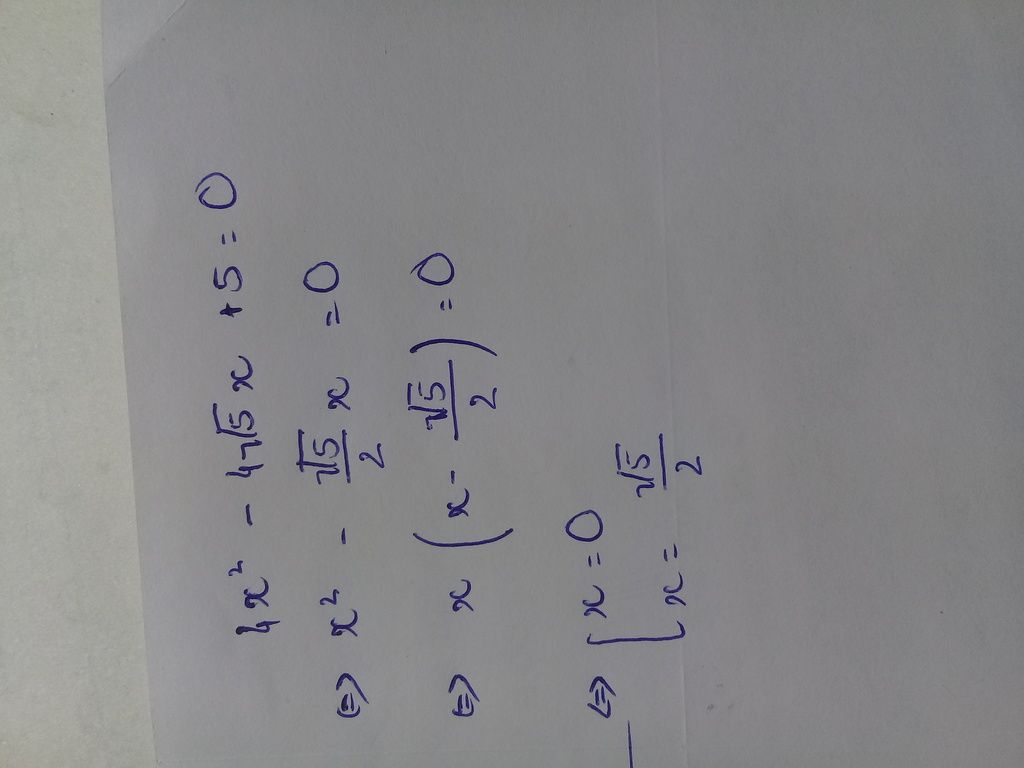 4x² - 4√5x + 5 = 0
⇔ x² - √5/2 x = 0
⇔ x (x - √5/2) = 0
⇔ [ x = 0
x = √5/2